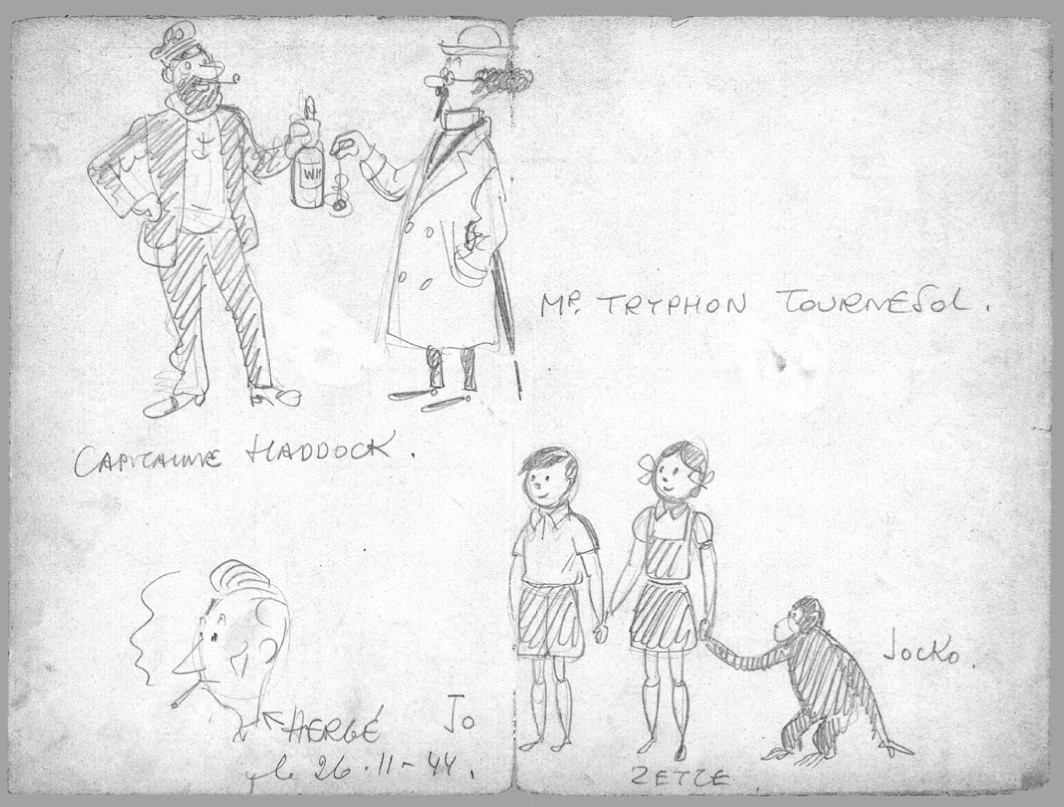 WH
MR. TRYPHON TOURNESOL.
CAPITAINE HADDOCK.
JOCKO.
HERGÉ
JO
le 26.11-44.
ZETTE